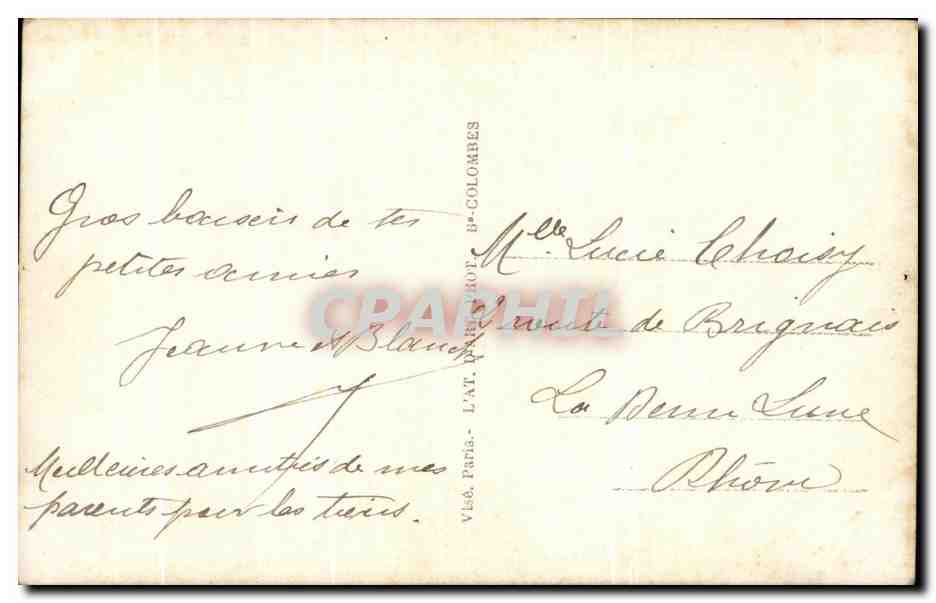 Gros baisers de tes
petites amies
Jeanne et Blanche
Meilleures amitiés de mes
parents pour les tiens.
Visé. Paris.- L'AT. D'ART PHOT. Bs-COLOMBES
Mlle. Lucie Choisy
route de Brignais
La Demi Lune
Rhône
CPAPHIL